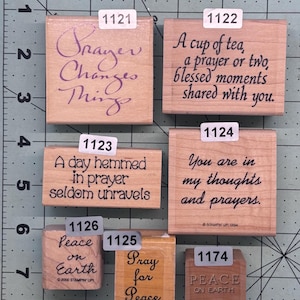 1121
Prayer
Changes
Things
1122
A cup of tea,
a prayer or two,
blessed moments
shared with you.
1123
A day hemmed
in prayer
seldom unravels
1124
You are in
my thoughts
and prayers.
1126
Peace
on
Earth
1125
Pray
for
Peace
1174
PEACE
ON EARTH
1
2
3
4
5
6
7